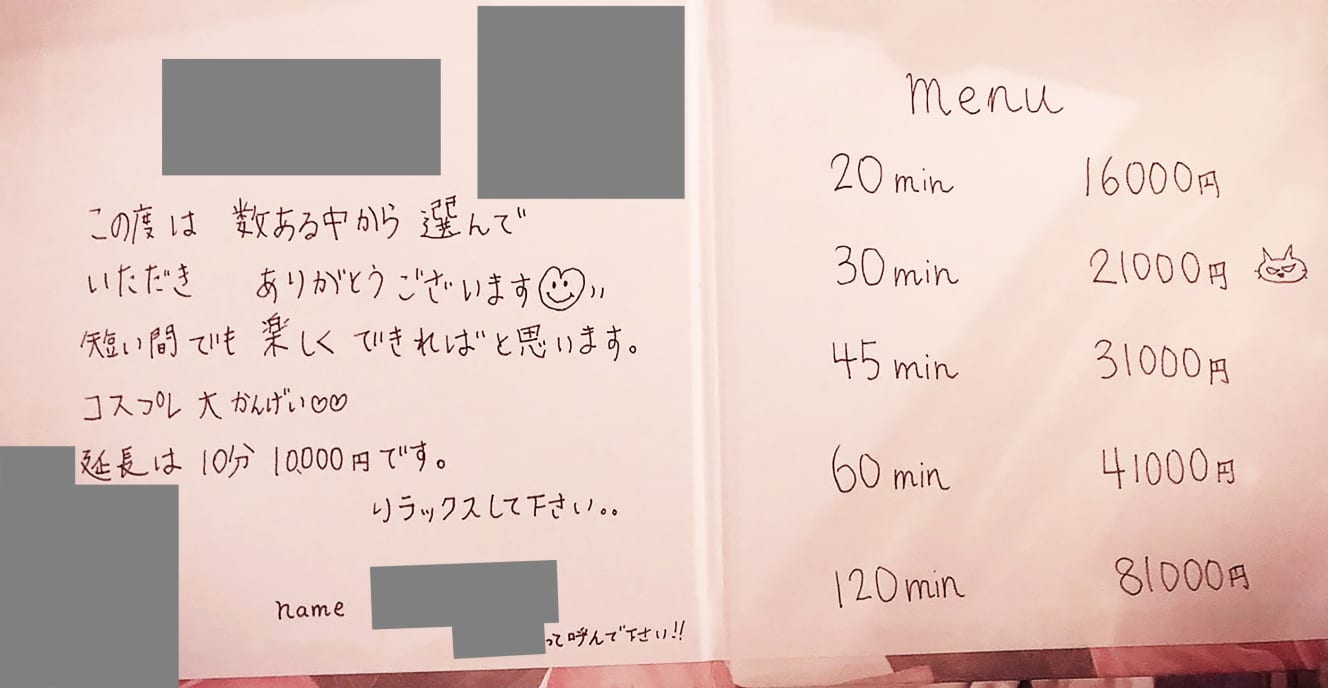 この度は 数ある中から 選んで
いただき ありがとうございます
短い間でも 楽しく できればと思います。
コスプレ 大かんげい♡♡
延長は 10分 10,000円です。
リラックスして下さい..
name
って呼んで下さい!!
menu
20min 16000円
30min 21000円
45min 31000円
60min 41000円
120min 81000円